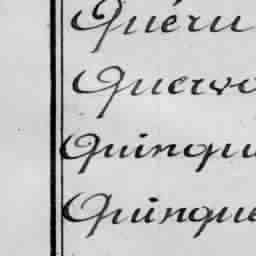 Quéru
Quervo
Quinqu
Quinque